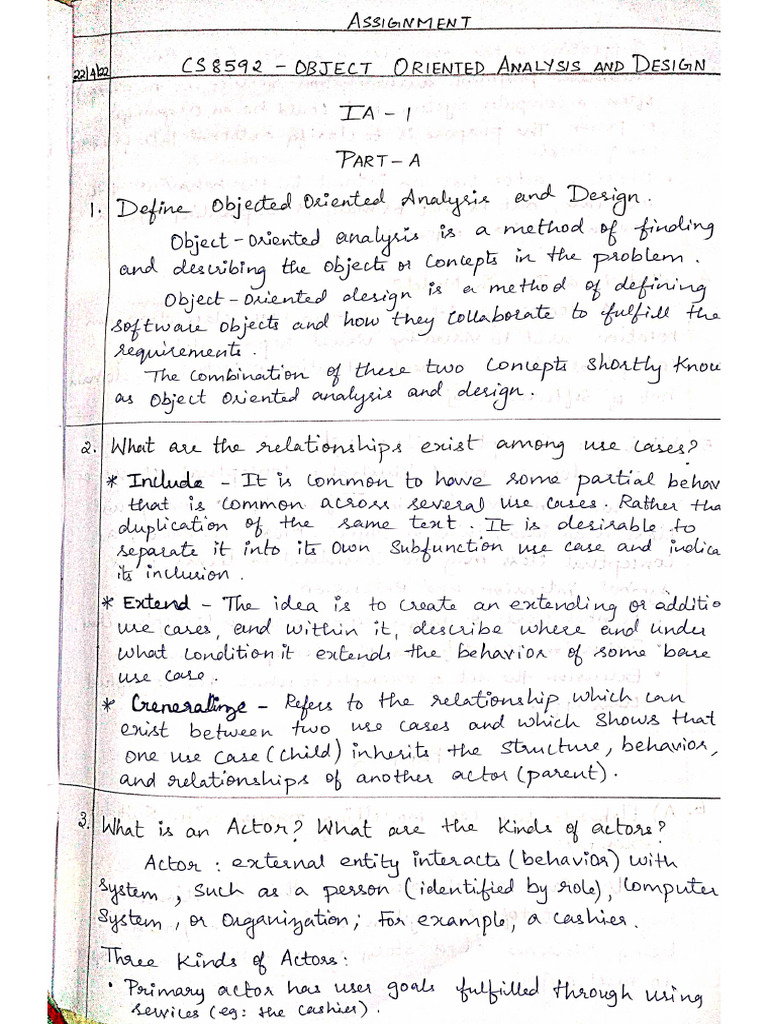 ASSIGNMENT
22/4/22
CS8592 - OBJECT ORIENTED ANALYSIS AND DESIGN
IA - 1
PART - A
1. Define Objected Oriented Analysis and Design.
Object-oriented analysis is a method of finding
and describing the objects or concepts in the problem.
Object-oriented design is a method of defining
software objects and how they collaborate to fulfill the
requirements.
The combination of these two concepts shortly know
as object oriented analysis and design.
2. What are the relationships exist among use cases?
* Include - It is common to have some partial behav
that is common across several use cases. Rather tha
duplication of the same text. It is desirable to
separate it into its own subfunction use case and indica
its inclusion.
* Extend - The idea is to create an extending or additio
use cases, and within it, describe where and under
what condition it extends the behavior of some base
use case.
* Generalize - Refers to the relationship which can
exist between two use cases and which shows that
one use case (child) inherits the structure, behavior,
and relationships of another actor (parent).
3. What is an Actor? What are the kinds of actors?
Actor : external entity interacts (behavior) with
system, such as a person (identified by role), computer
system, or organization; for example, a cashier.
Three kinds of Actors:
• Primary actor has user goals fulfilled through using
services (eg: the cashier).